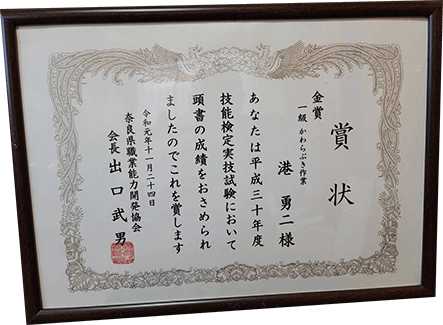 賞状
金賞
一級 かわらぶき作業
港 勇二 様
あなたは平成三十年度
技能検定実技試験において
頭書の成績をおさめられ
ましたのでこれを賞します
令和元年十一月二十四日
奈良県職業能力開発協会
会長 出口武男